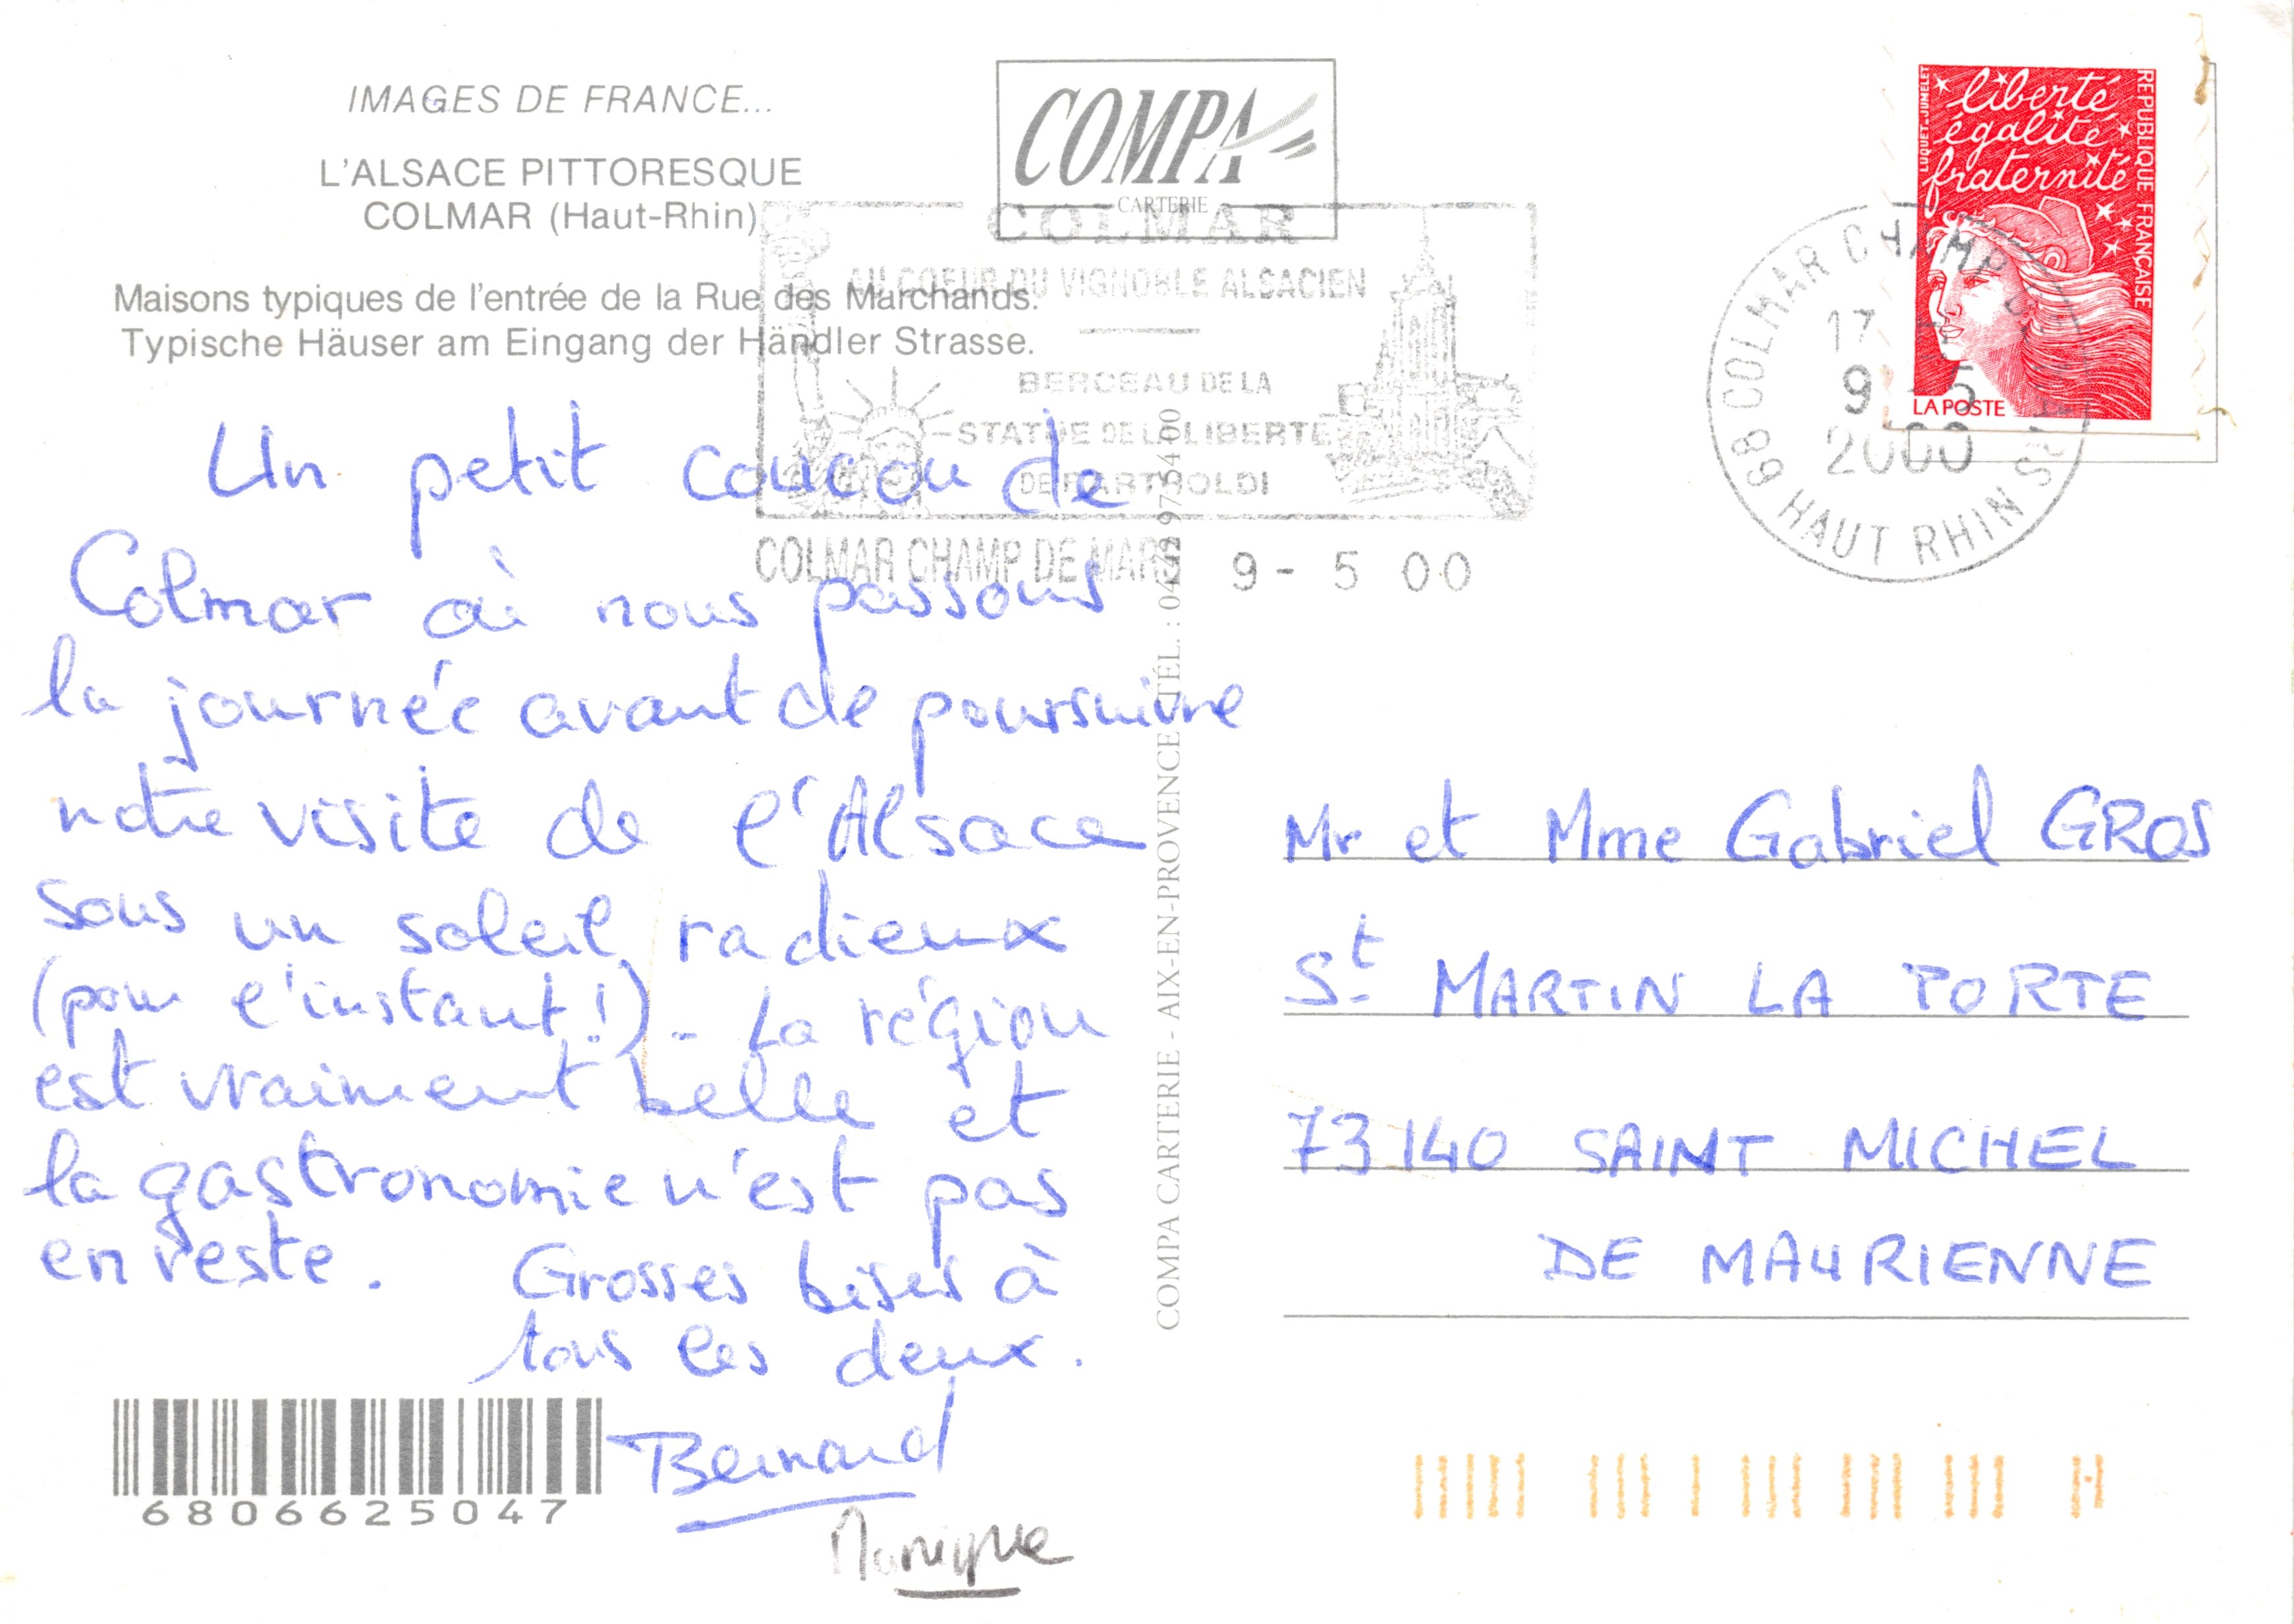 IMAGES DE FRANCE...
L'ALSACE PITTORESQUE
COLMAR (Haut-Rhin)
Maisons typiques de l'entrée de la Rue des Marchands.
Typische Häuser am Eingang der Händler Strasse.
COMPA
CARTERIE
COLMAR
AU COEUR DU VIGNOBLE ALSACIEN
BERCEAU DE LA
STATUE DE LA LIBERTE
DE BARTHOLDI
COLMAR CHAMP DE MARS 9 - 5 00
68 COLMAR CHAMP
HAUT RHIN
17
9 - 5
2000
LUQUET-JUMELET
liberté
égalité
fraternité
REPUBLIQUE FRANÇAISE
LA POSTE
Un petit coucou de
Colmar où nous passons
la journée avant de poursuivre
notre visite de l'Alsace
sous un soleil radieux
(pour l'instant!) - La région
est vraiment belle et
la gastronomie n'est pas
en reste. Grosses bises à
tous les deux.
Bernard
Monique
6806625047
COMPA CARTERIE - AIX-EN-PROVENCE TÉL. : 04 42 97 54 00
Mr et Mme Gabriel GROS
St MARTIN LA PORTE
73140 SAINT MICHEL
DE MAURIENNE